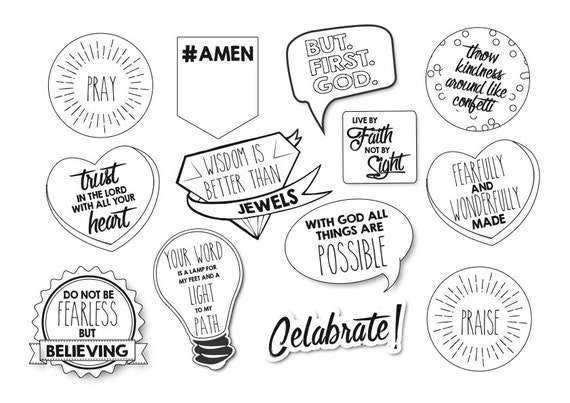 PRAY
#AMEN
BUT.
FIRST.
GOD.
throw
kindness
around like
confetti
trust
IN THE LORD
WITH ALL YOUR
heart
WISDOM IS
BETTER THAN
JEWELS
LIVE BY
Faith
NOT BY
Sight
FEARFULLY
AND
WONDERFULLY
MADE
DO NOT BE
FEARLESS
BUT
BELIEVING
YOUR WORD
IS A LAMP FOR
MY FEET AND A
LIGHT
TO MY
PATH
WITH GOD ALL
THINGS ARE
POSSIBLE
Celabrate!
PRAISE